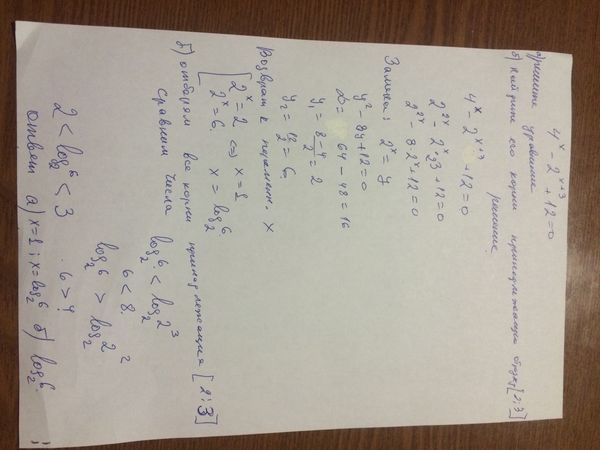 4^x - 2^{x+3} + 12 = 0
а) решите уравнение
б) найдите его корни принадлежащие [2;3]
решение.
4^x - 2^{x+3} + 12 = 0
2^{2x} - 2^x · 2^3 + 12 = 0
2^{2x} - 8·2^x + 12 = 0
Замена: 2^x = y
y^2 - 8y + 12 = 0
D = 64 - 48 = 16
y_1 = (8-4)/2 = 2
y_2 = 12/2 = 6.
Возврат к перемен. x
[2^x = 2 ⇔ x = 1
2^x = 6. x = log_2 6.
б) отберём все корни принадлежащие [2;3]
сравним числа
log_2 6 < log_2 2^3
6 < 8.
log_2 6 > log_2 2^2
6 > 4
2 < log_2 6 < 3
ответ а) x=1; x=log_2 6 б) log_2 6.